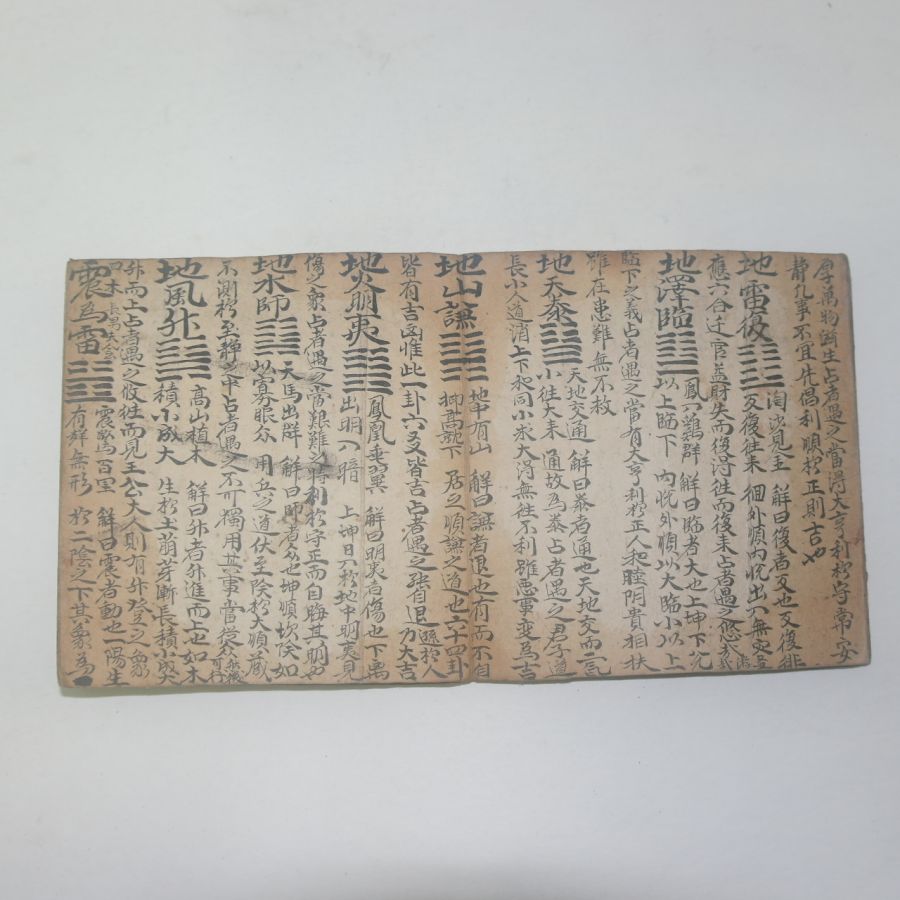 厚萬物資生占者遇之當得大亨利於守常安
靜凡事不宜先倡利順於正則吉也
地雷復
淘沙見 解曰復者反也反復徘
反復往来 徊外順內悅出入無灾
應六合迁官益財失而復得往而復来占者遇之悠哉
地澤臨
鳳入鷄群 解曰臨者大也上坤下兌
以上臨下 內悅外順以大臨小以上
臨下之義占者遇之當有大亨利於正人和睦阴貴相扶
雖在患難無不救
地天泰
天地交通 解曰泰者通也天地交而二氣
小往大来 通故為泰占者遇之君子道
長小人道消上下和同小求大得無往不利雖惡事变為吉
地山謙
地中有山 解曰謙者退也有而不自
仰高就下 居之順謙之道也六十四卦
皆有吉凶惟此一卦六爻皆吉占者遇之 自退遜於人 大吉
地火明夷
鳳凰垂翼 解曰明夷者傷也下离
出明入暗 上坤日入於地中明夷見
傷之象占者遇之當艱難之時利於守正而自晦其明
地水師
天馬出群 解曰師者众也坤順坎険如
以寡眼众 用兵之道伏至険於大順蔵
不測於至靜之中占者遇之不可獨用其事當從众然後可行
地風升
高山植木 解曰升者升進而上也如木
積小成大 生於土萌芽漸長積小成
升而上占者遇之攸往而見王公大人則有升登之象
震為雷
震驚百里 解曰震者動也一陽生
有聲無形 於二陰之下其象為